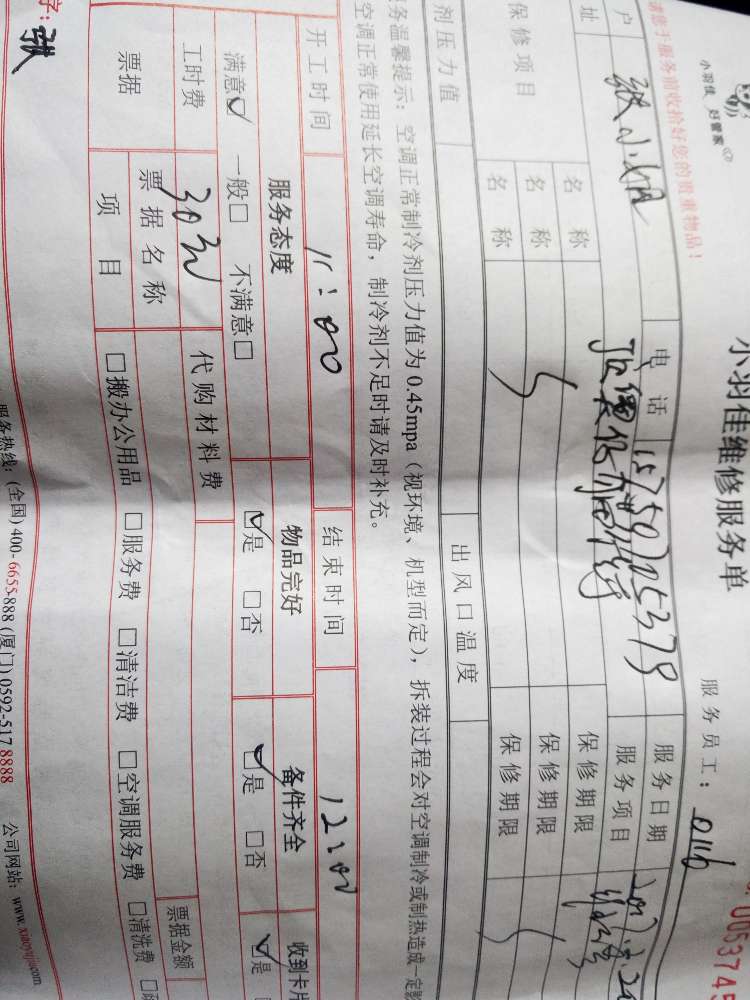 小羽佳 好管家
小羽佳维修服务单
服务员工：0116
0053745
请您于服务前收拾好您的贵重物品！
户 张小姐 电话 15750705379 服务日期
址 服务项目
保修项目 名称 保修期限
名称 保修期限
名称 保修期限
剂压力值 出风口温度
务温馨提示：空调正常制冷剂压力值为0.45mpa（视环境、机型而定），拆装过程会对空调制冷或制热造成一定影
空调正常使用延长空调寿命，制冷剂不足时请及时补充。
开工时间 11:00 结束时间 12:00
服务态度 物品完好 备件齐全 收到卡片
满意☑ 一般□ 不满意□ ☑是 □否 ☑是 □否 ☑是
工时费 30元 代购材料费
票据 票据名称 票据金额
项目 □搬办公用品 □服务费 □清洁费 □空调服务费 □清洗费
字：张
服务热线：(全国) 400-6655-888 (厦门) 0592-517 8888 公司网站：www.xiaoyujia.com